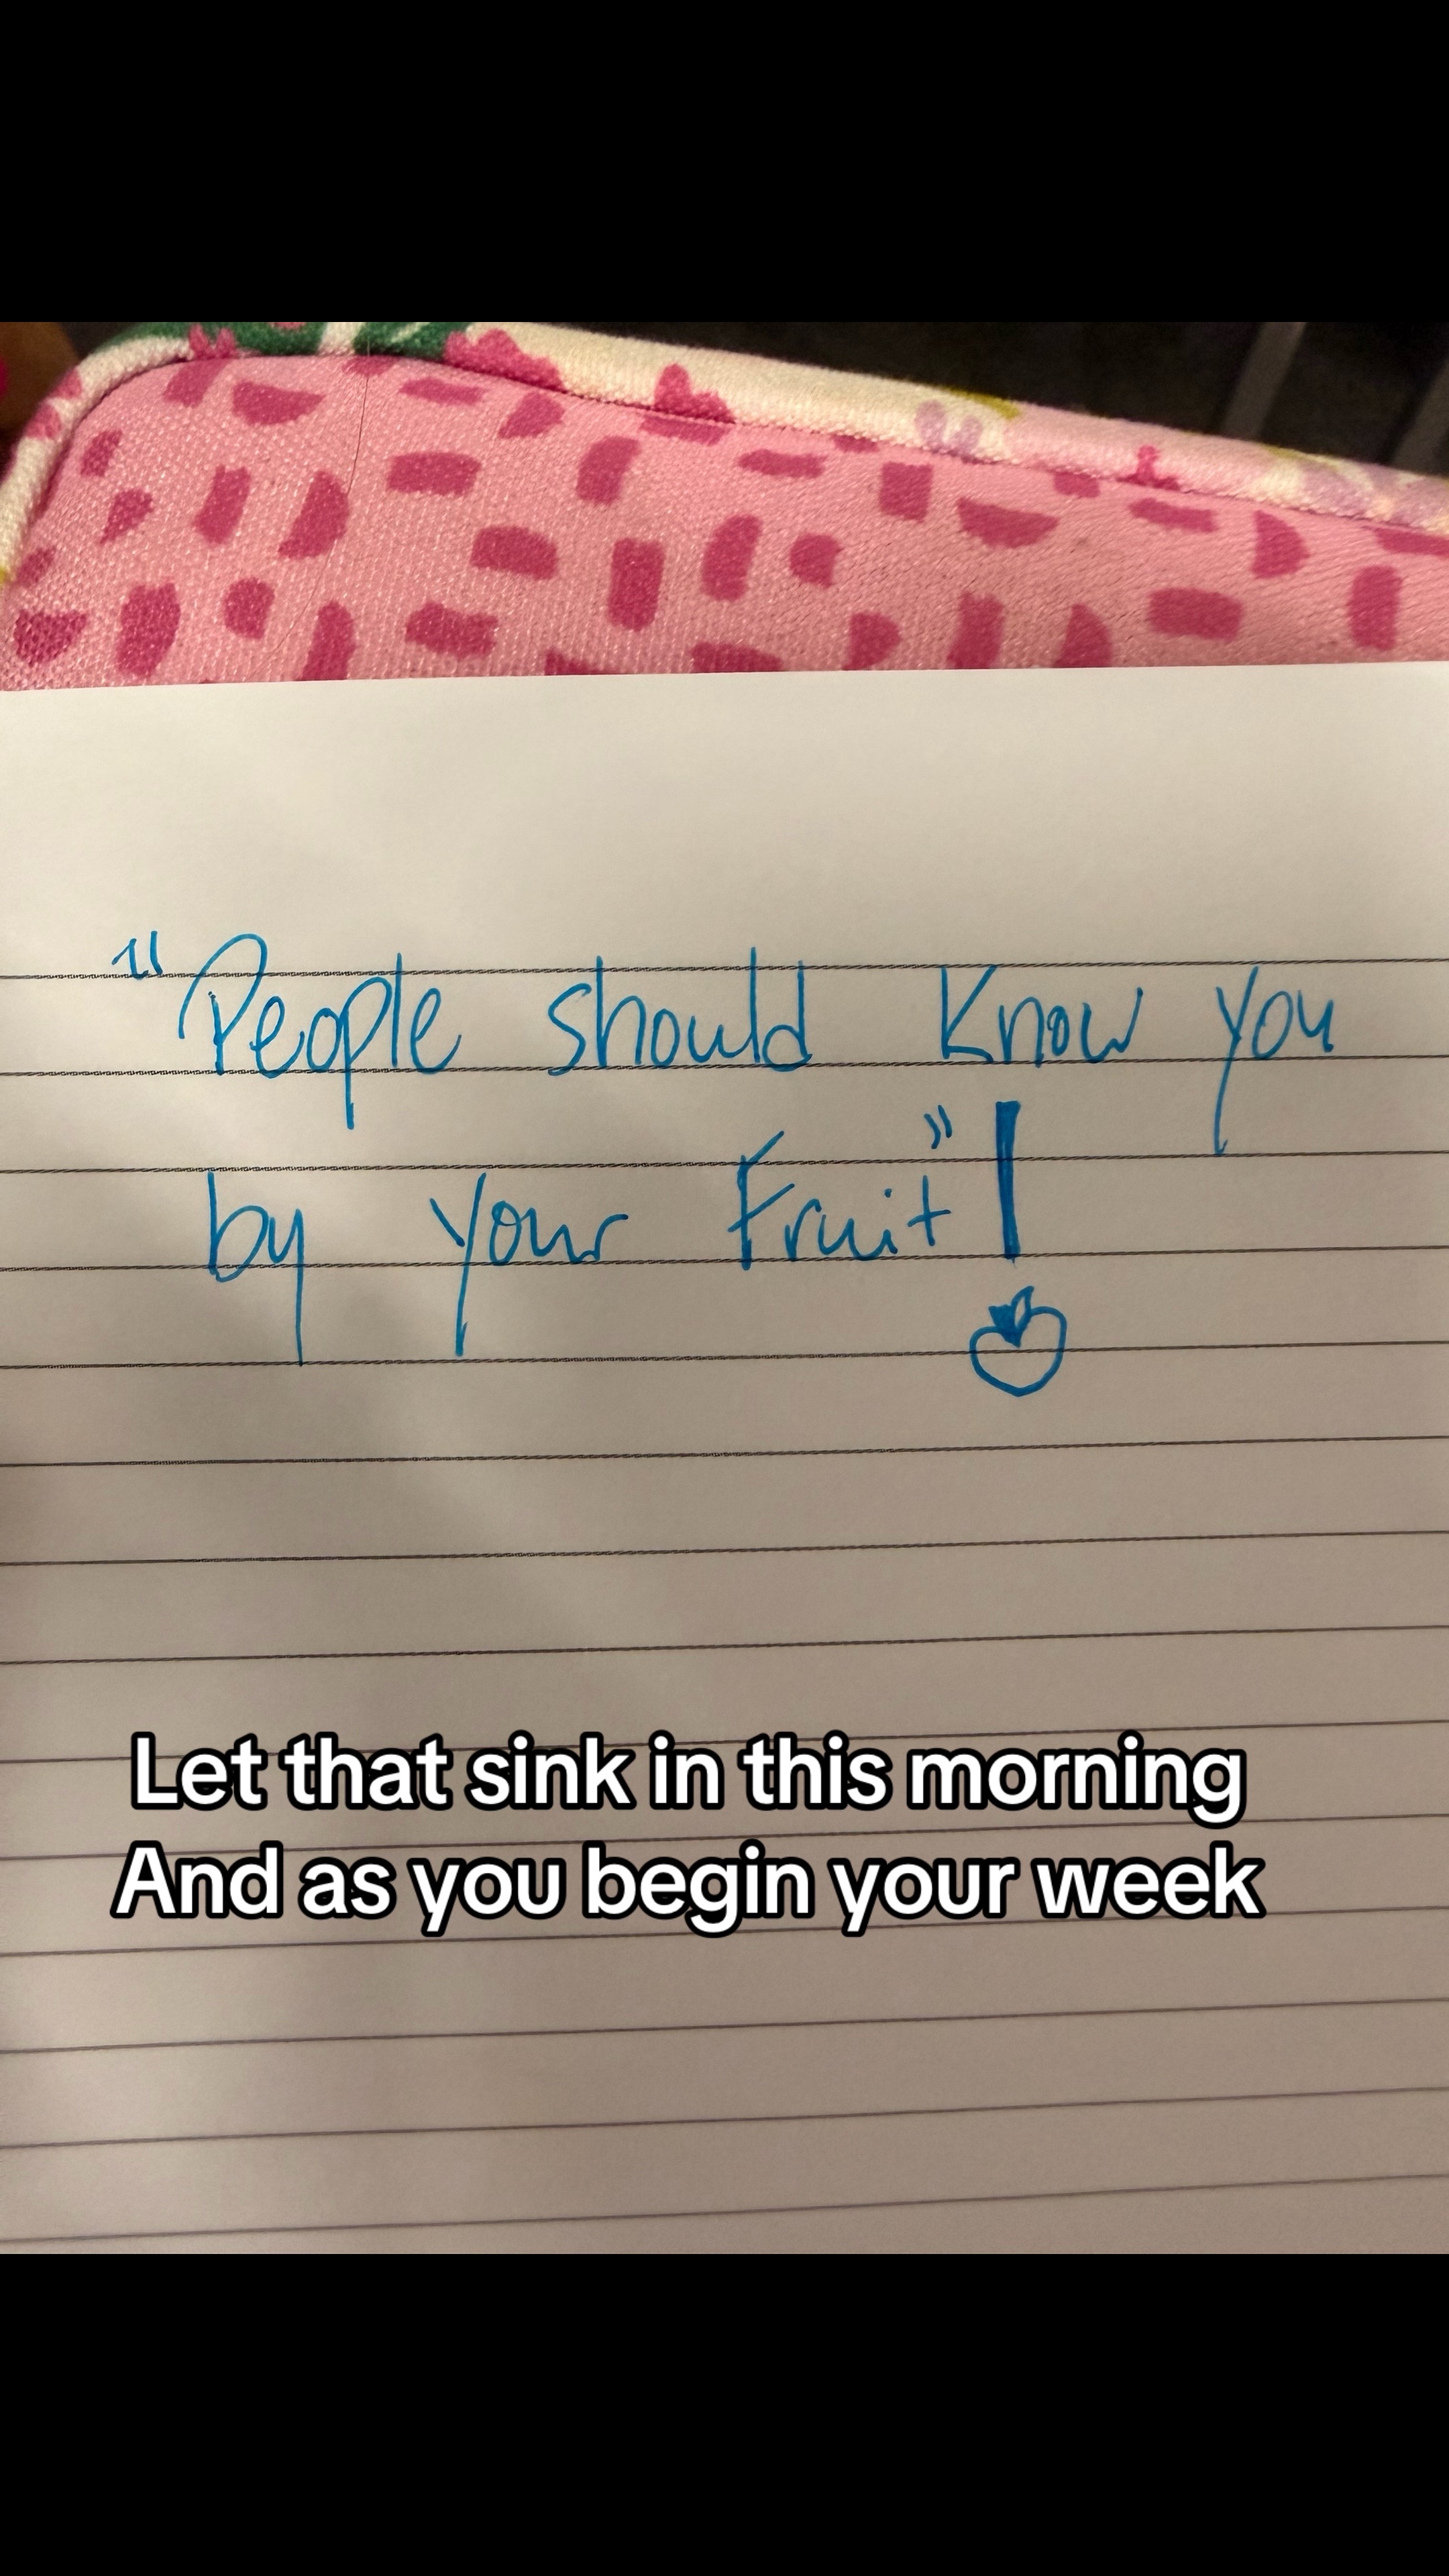 "People should Know you
by your Fruit"!
Let that sink in this morning
And as you begin your week